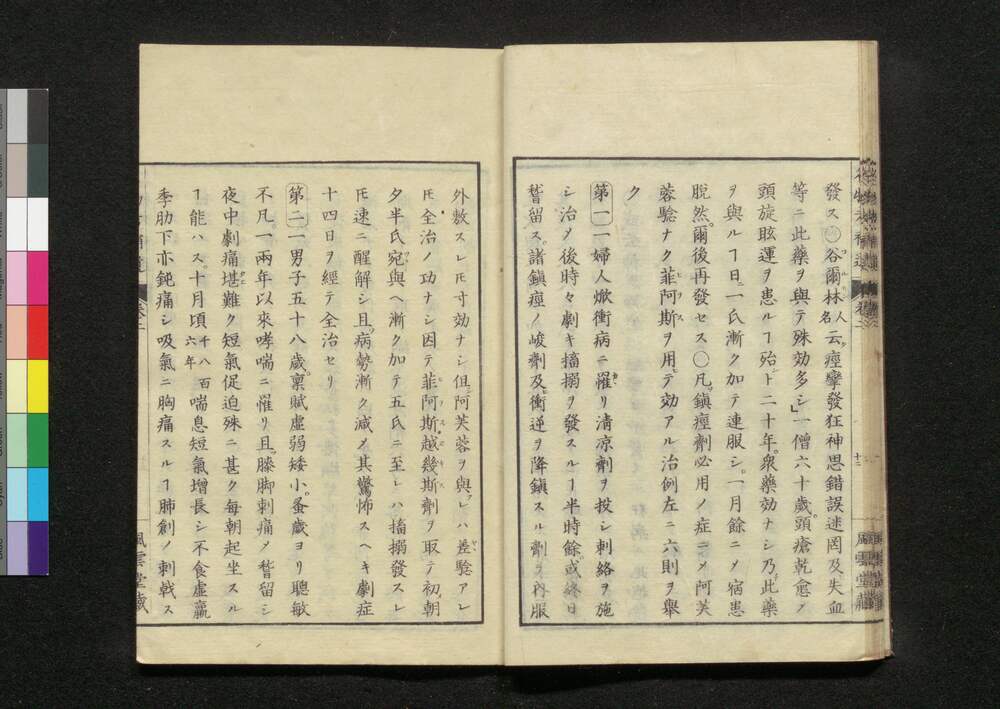 發ス○谷爾林人名云痙攣發狂神思錯誤迷罔及失血
等ニ此藥ヲ與テ殊効多シ」一僧六十歲頭瘡乾愈ノ
頭旋眩運ヲ患ルヿ殆ト二十年衆藥効ナシ乃此藥
ヲ與ルヿ日二一氏漸ク加テ連服シ一月餘ニメ宿患
脫然爾後再發セス○凡鎮痙劑必用ノ症ニメ阿芙
蓉驗ナク菲阿斯ヲ用テ効アル治例左ニ六則ヲ舉
ク
第一一婦人焮衝病ニ罹リ清凉劑ヲ投シ刺絡ヲ施
シ治メ後時々劇キ搐搦ヲ發スルヿ半時餘或終日
稽留ス諸鎮痙ノ峻劑及衝逆ヲ降鎮スル劑ヲ內服
外敷スレ𪜈寸効ナシ但阿芙蓉ヲ與レハ差驗アレ
𪜈全治ノ功ナシ因テ菲阿斯越幾斯劑ヲ取テ初朝
夕半氏宛與ヘ漸ク加テ五氏ニ至レハ搐搦發スレ
𪜈速ニ醒解シ且病勢漸ク減メ其驚怖スヘキ劇症
十四日ヲ經テ全治セリ
第二一男子五十八歲稟賦虛弱矮小蚤歲ヨリ聰敏
不凡一兩年以來哮喘ニ罹リ且膝脚刺痛メ稽留シ
夜中劇痛堪難ク短氣促迫殊ニ甚ク每朝起坐スル
ヿ能ハス十月頃千八百六年喘息短氣增長シ不食虛羸
季肋下亦鈍痛シ吸氣ニ胸痛スルヿ肺創ノ刺戟ス
風雲堂藏
風雲堂藏